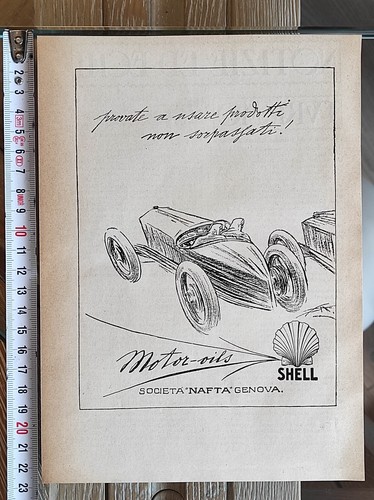 provate a usare prodotti
non sorpassati!
Motor-oils
SHELL
SOCIETA "NAFTA" GENOVA.
2
3
4
5
6
7
8
9
10
11
12
13
14
15
16
17
18
19
20
21
22
23